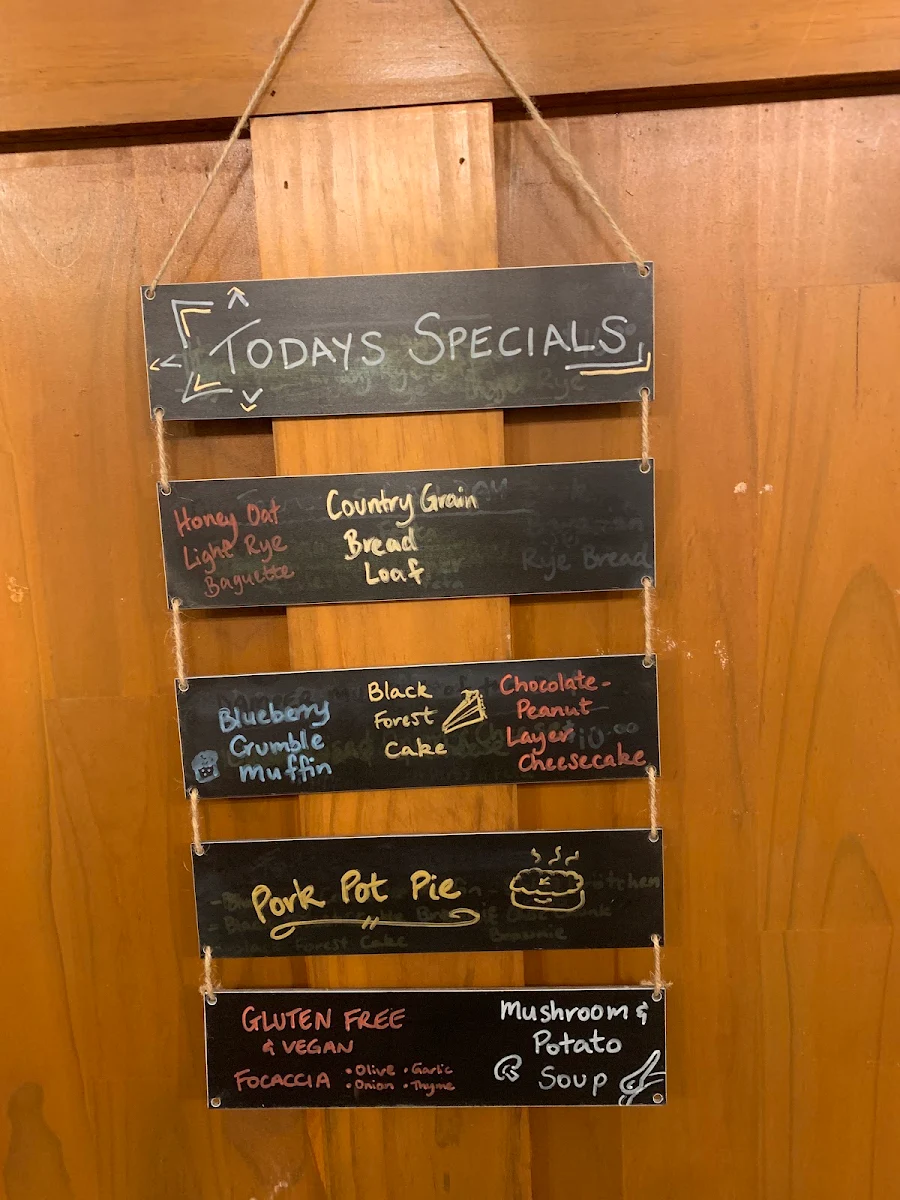 TODAYS SPECIALS
Honey Oat
Light Rye
Baguette
Country Grain
Bread
Loaf
Rye Bread
Blueberry
Crumble
Muffin
Black
Forest
Cake
Chocolate-
Peanut
Layer
Cheesecake
Pork Pot Pie
Forest Cake
Brownie
GLUTEN FREE
& VEGAN
FOCACCIA
• Olive • Garlic
• Onion • Thyme
Mushroom &
Potato
Soup